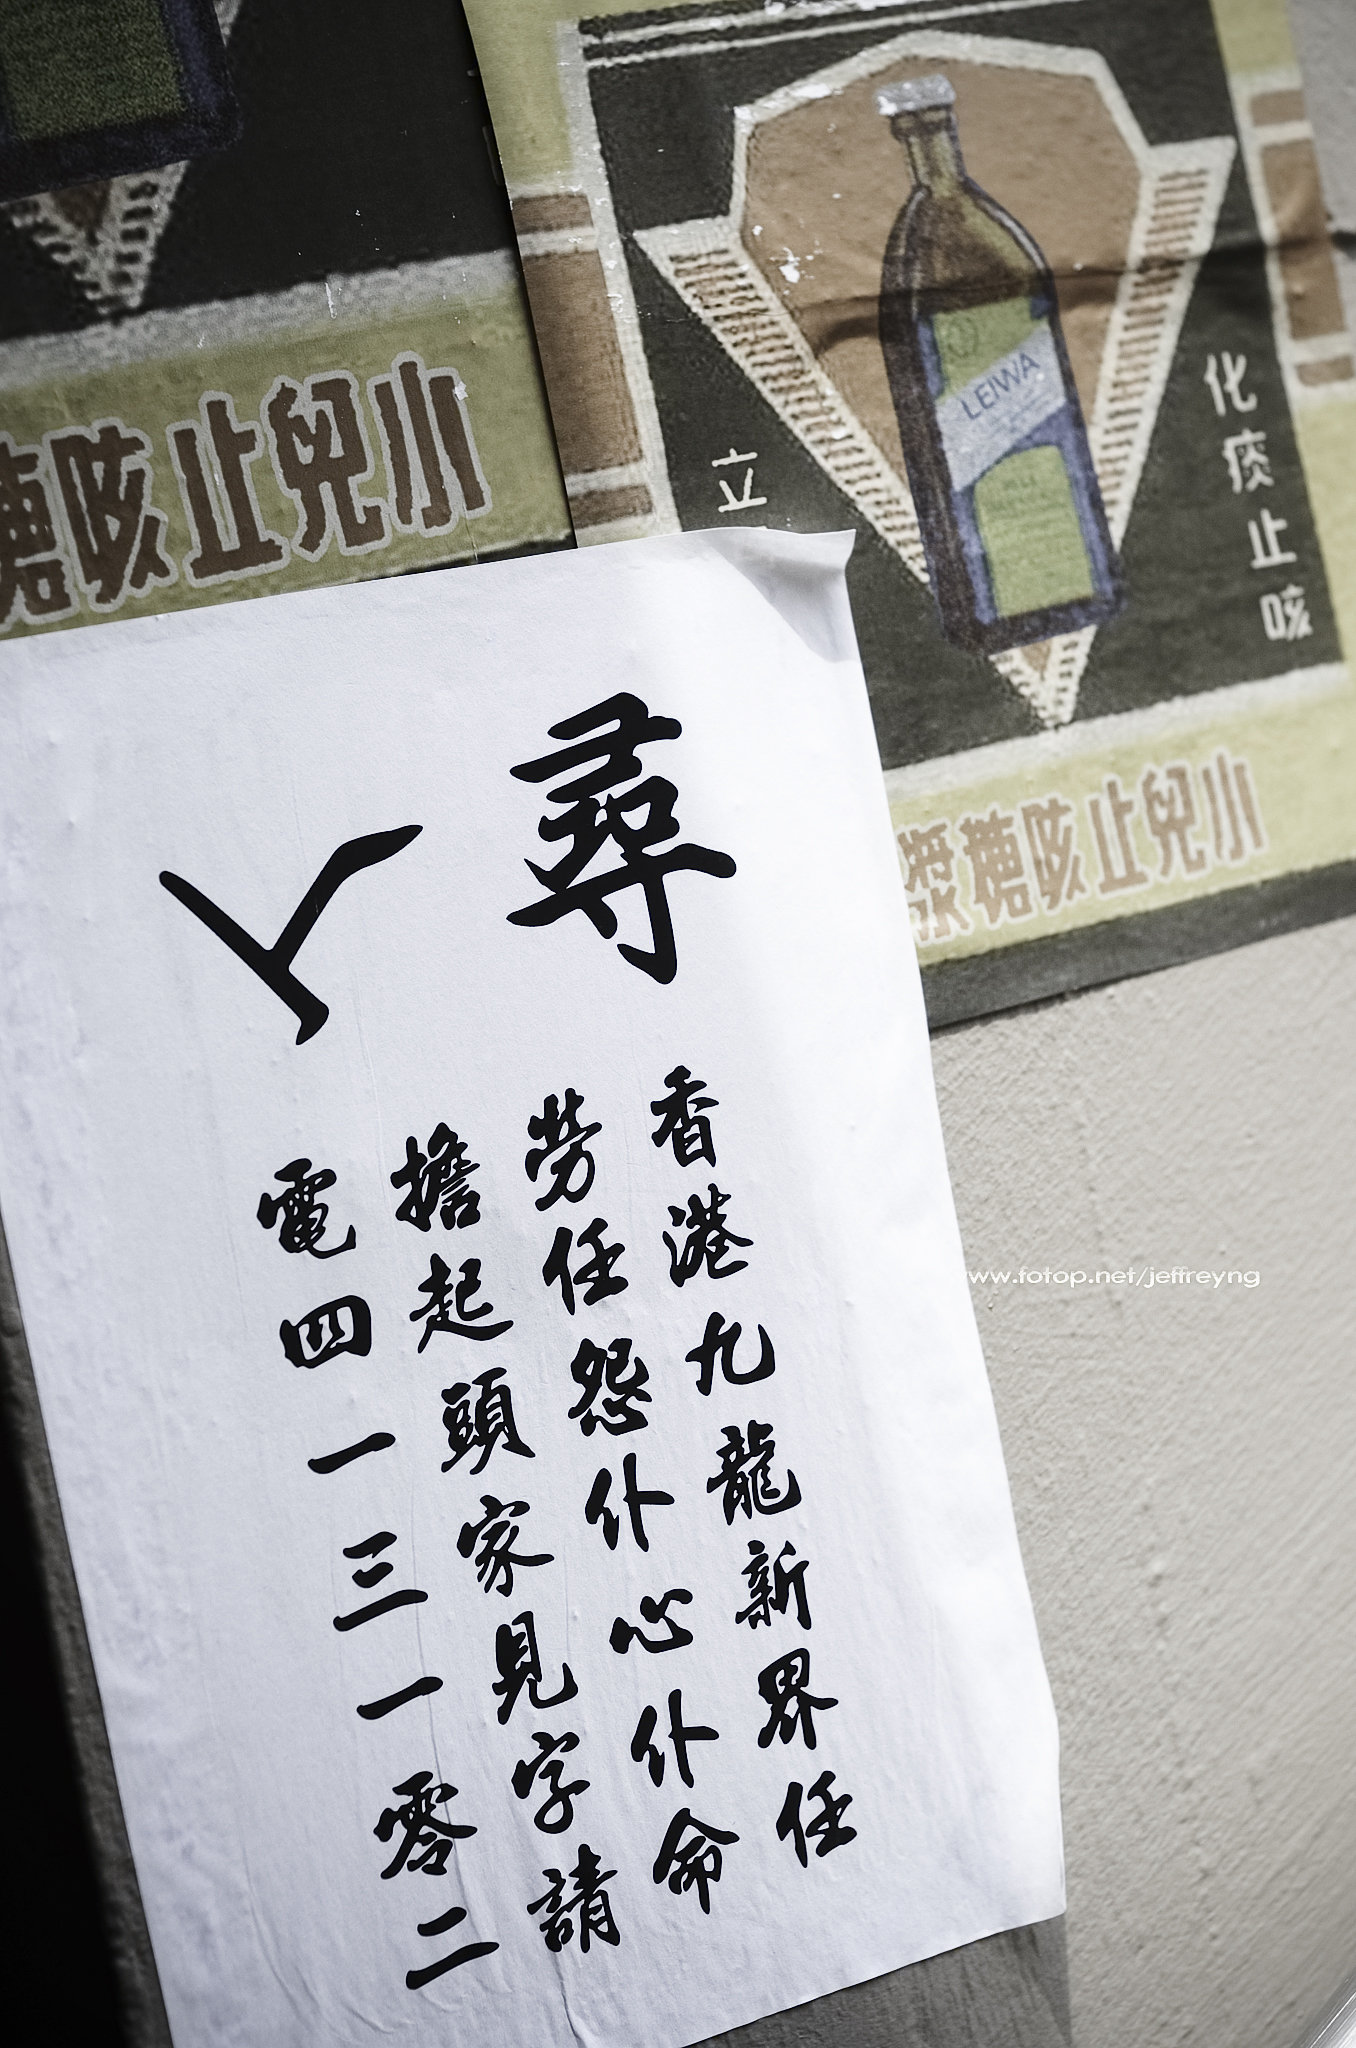 小兒止咳糖
LEIWA
化痰止咳
立
小兒止咳糖漿
尋人
香港九龍新界任
勞任怨仆心仆命
擔起頭家見字請
電四一三一零二
www.fotop.net/jeffreyng